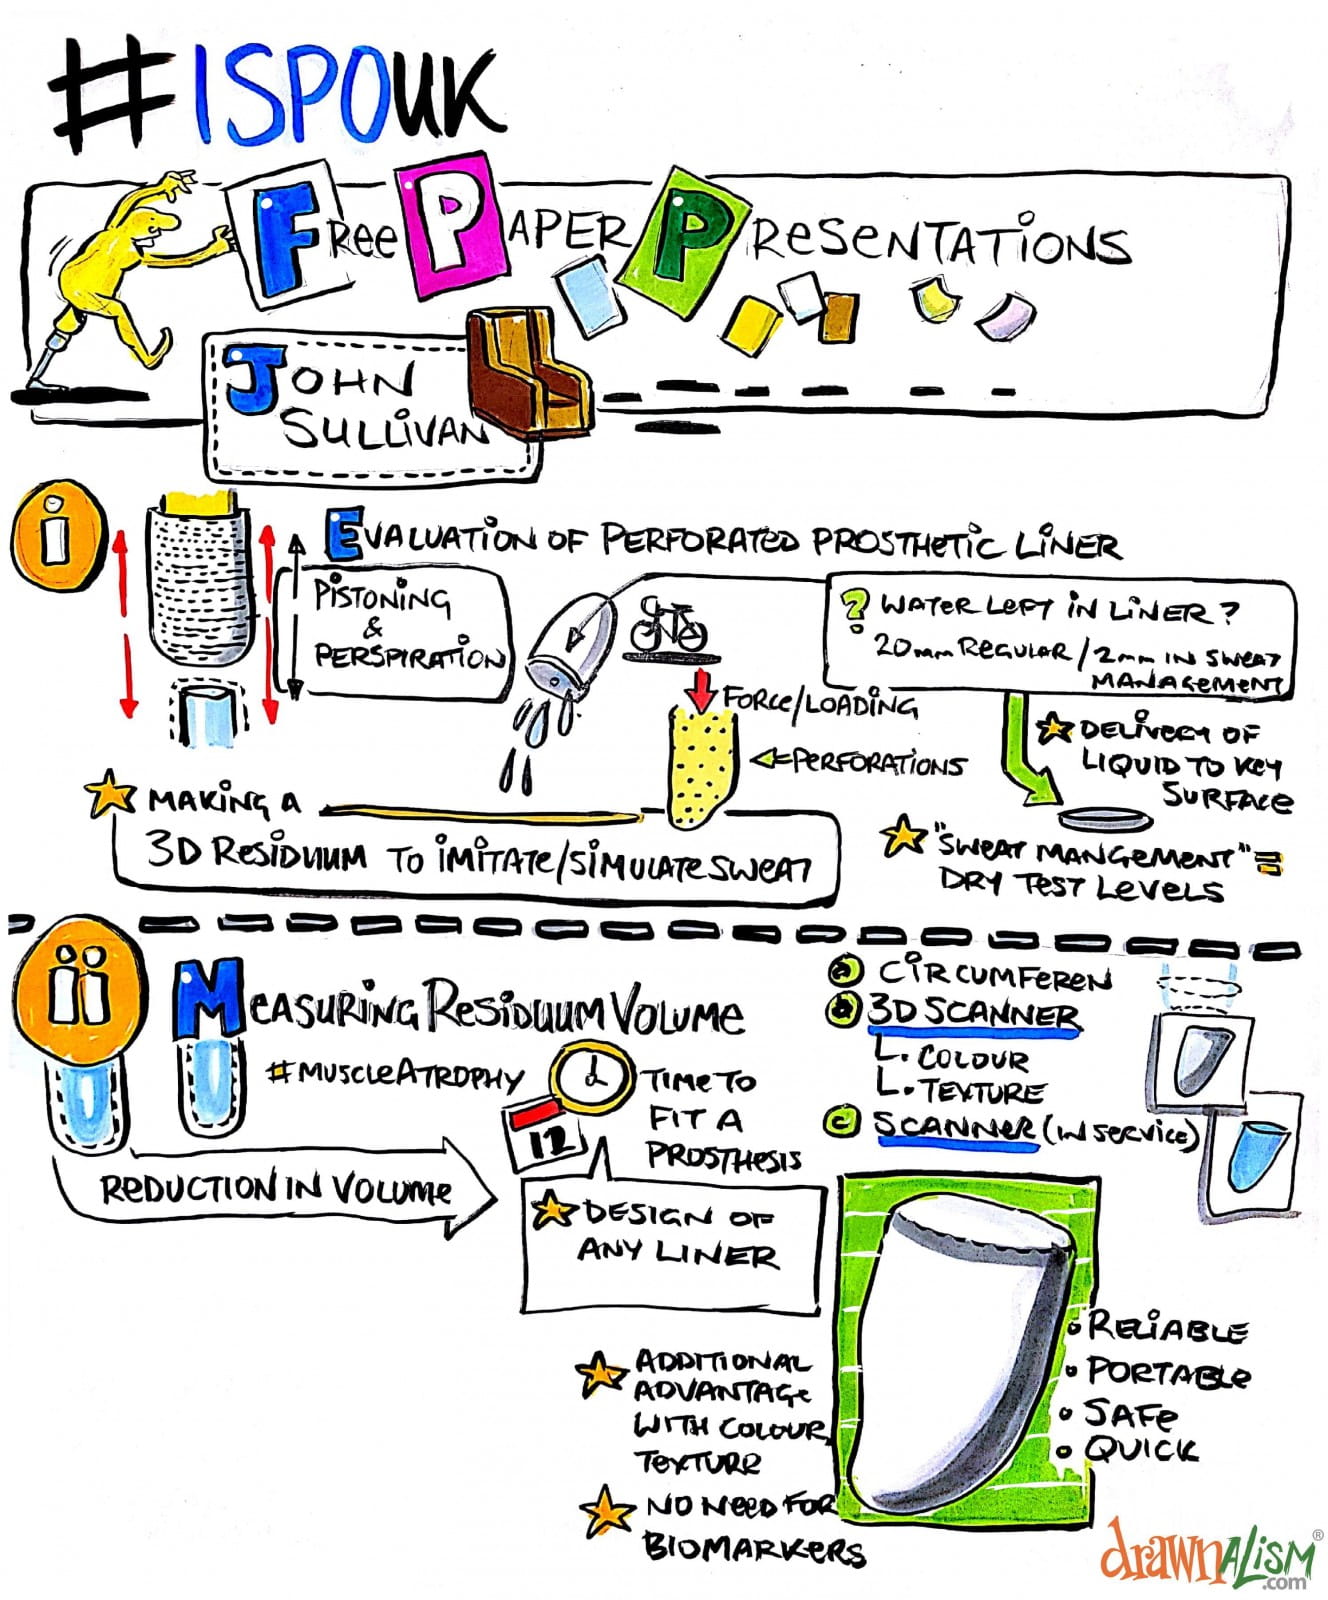 #ISPOUK
FREE PAPER PRESENTATIONS
JOHN
SULLIVAN
i
EVALUATION OF PERFORATED PROSTHETIC LINER
PISTONING
&
PERSPIRATION
? WATER LEFT IN LINER?
20mm REGULAR / 2mm IN SWEAT
MANAGEMENT
FORCE/LOADING
PERFORATIONS
DELIVERY OF
LIQUID TO KEY
SURFACE
MAKING A
3D RESIDUUM TO IMITATE/SIMULATE SWEAT
"SWEAT MANGEMENT" =
DRY TEST LEVELS
ii
MEASURING RESIDUUM VOLUME
#MUSCLEATROPHY
REDUCTION IN VOLUME
12
TIME TO
FIT A
PROSTHESIS
DESIGN OF
ANY LINER
A CIRCUMFEREN
B 3D SCANNER
L. COLOUR
L. TEXTURE
C SCANNER (IN SERVICE)
ADDITIONAL
ADVANTAGE
WITH COLOUR,
TEXTURE
NO NEED FOR
BIOMARKERS
• RELIABLE
• PORTABLE
• SAFE
• QUICK
drawnALISM®
.com